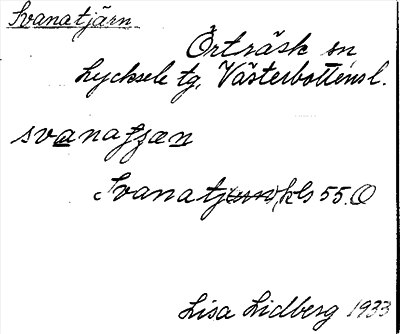 Svanatjärn
Örträsk sn
Lycksele tg, Västerbottensl.
svanatjæn
Svanatj kls 55.O
Lisa Lidberg 1933